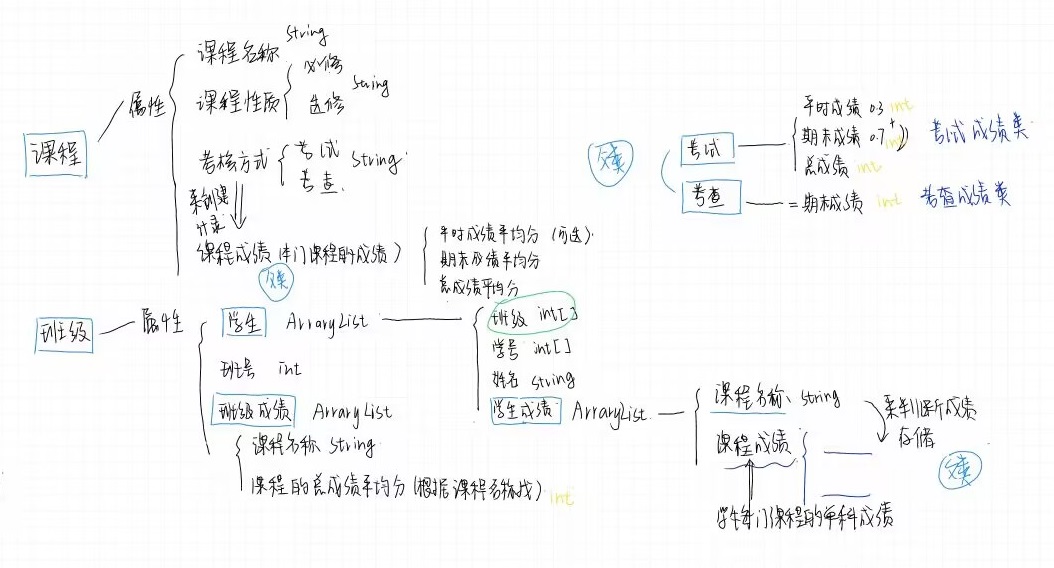 课程
属性
课程名称 String
课程性质 必修 选修 String
考核方式 考试 考查 String
来创建
课程成绩 (本门课程的成绩)
平时成绩平均分 (可选)
期末成绩平均分
总成绩平均分
父类
父类
考试
平时成绩 0.3 int
期末成绩 0.7 int
总成绩 int
考试成绩类
考查
=期末成绩 int
考查成绩类
班级
属性
学生 ArraryList
班级 int[]
学号 int[]
姓名 string
学生成绩 ArraryList
班号 int
班级成绩 ArraryList
课程名称 String
课程的总成绩平均分 (根据课程名称找) int
课程名称 string
课程成绩
来判断成绩
存储
父类
学生每门课程的单科成绩